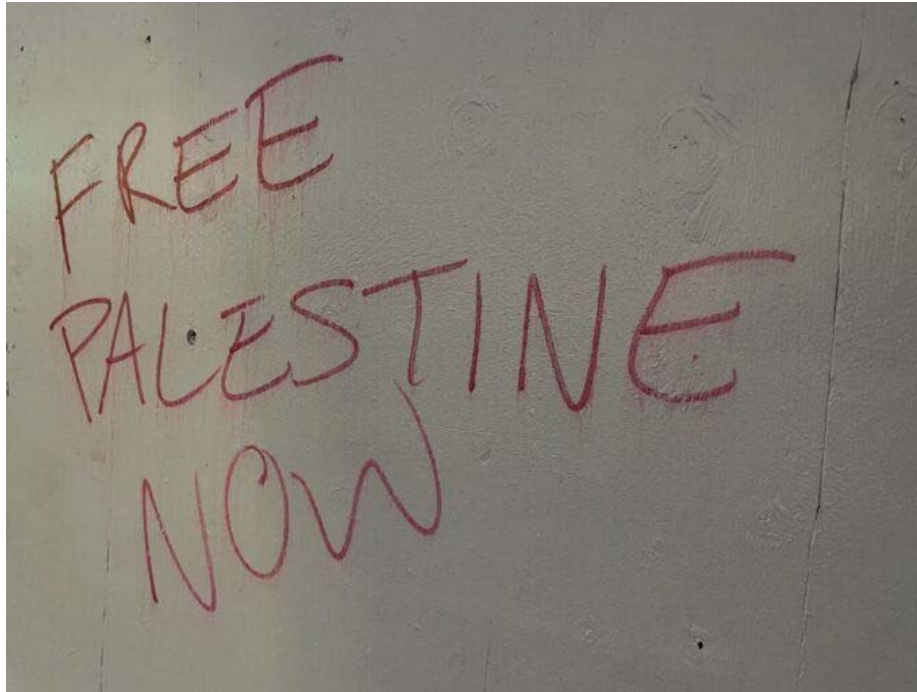 FREE
PALESTINE
NOW